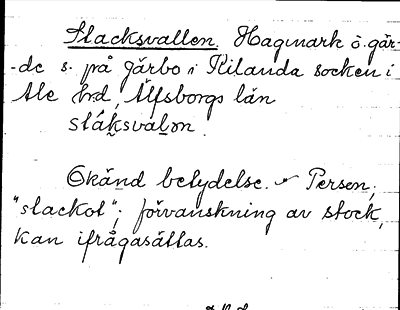 Slacksvallen. Hagmark o. går-
-de s. på Gärbo i Kilanda socken i
Ale hrd, Älfsborgs län
slák̯svàl̯ən.
Okänd betydelse. Persen,
"slackot"; förvanskning av stock,
kan ifrågasättas.